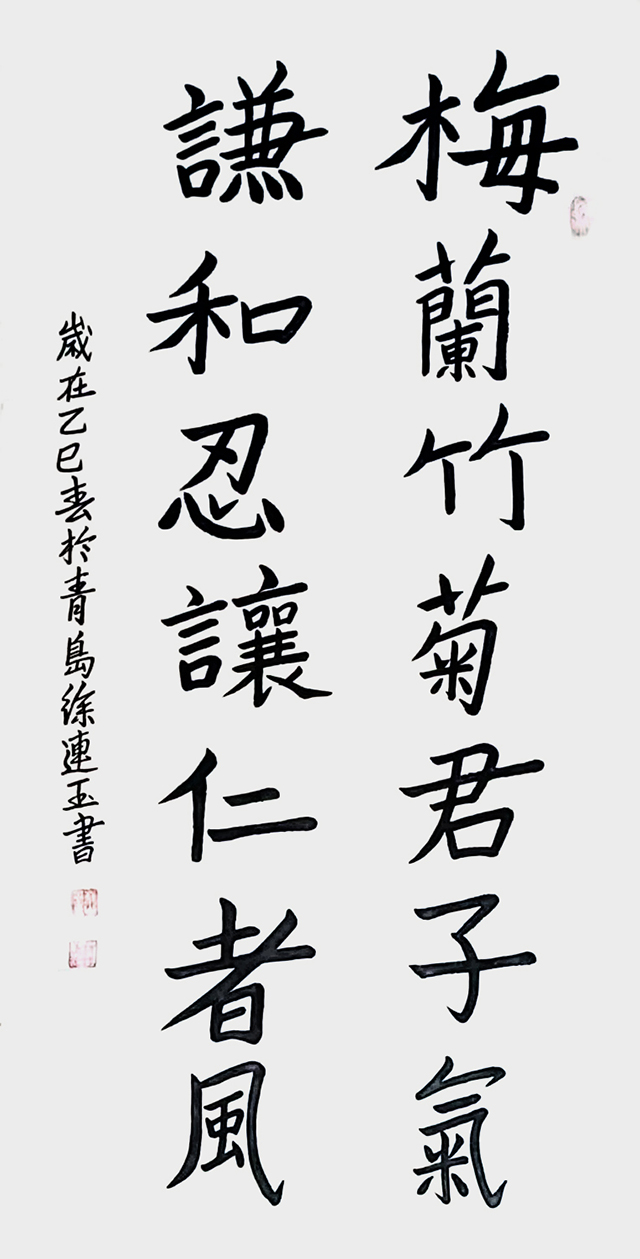 梅蘭竹菊君子氣
謙和忍讓仁者風
歲在乙巳春於青島徐連玉書